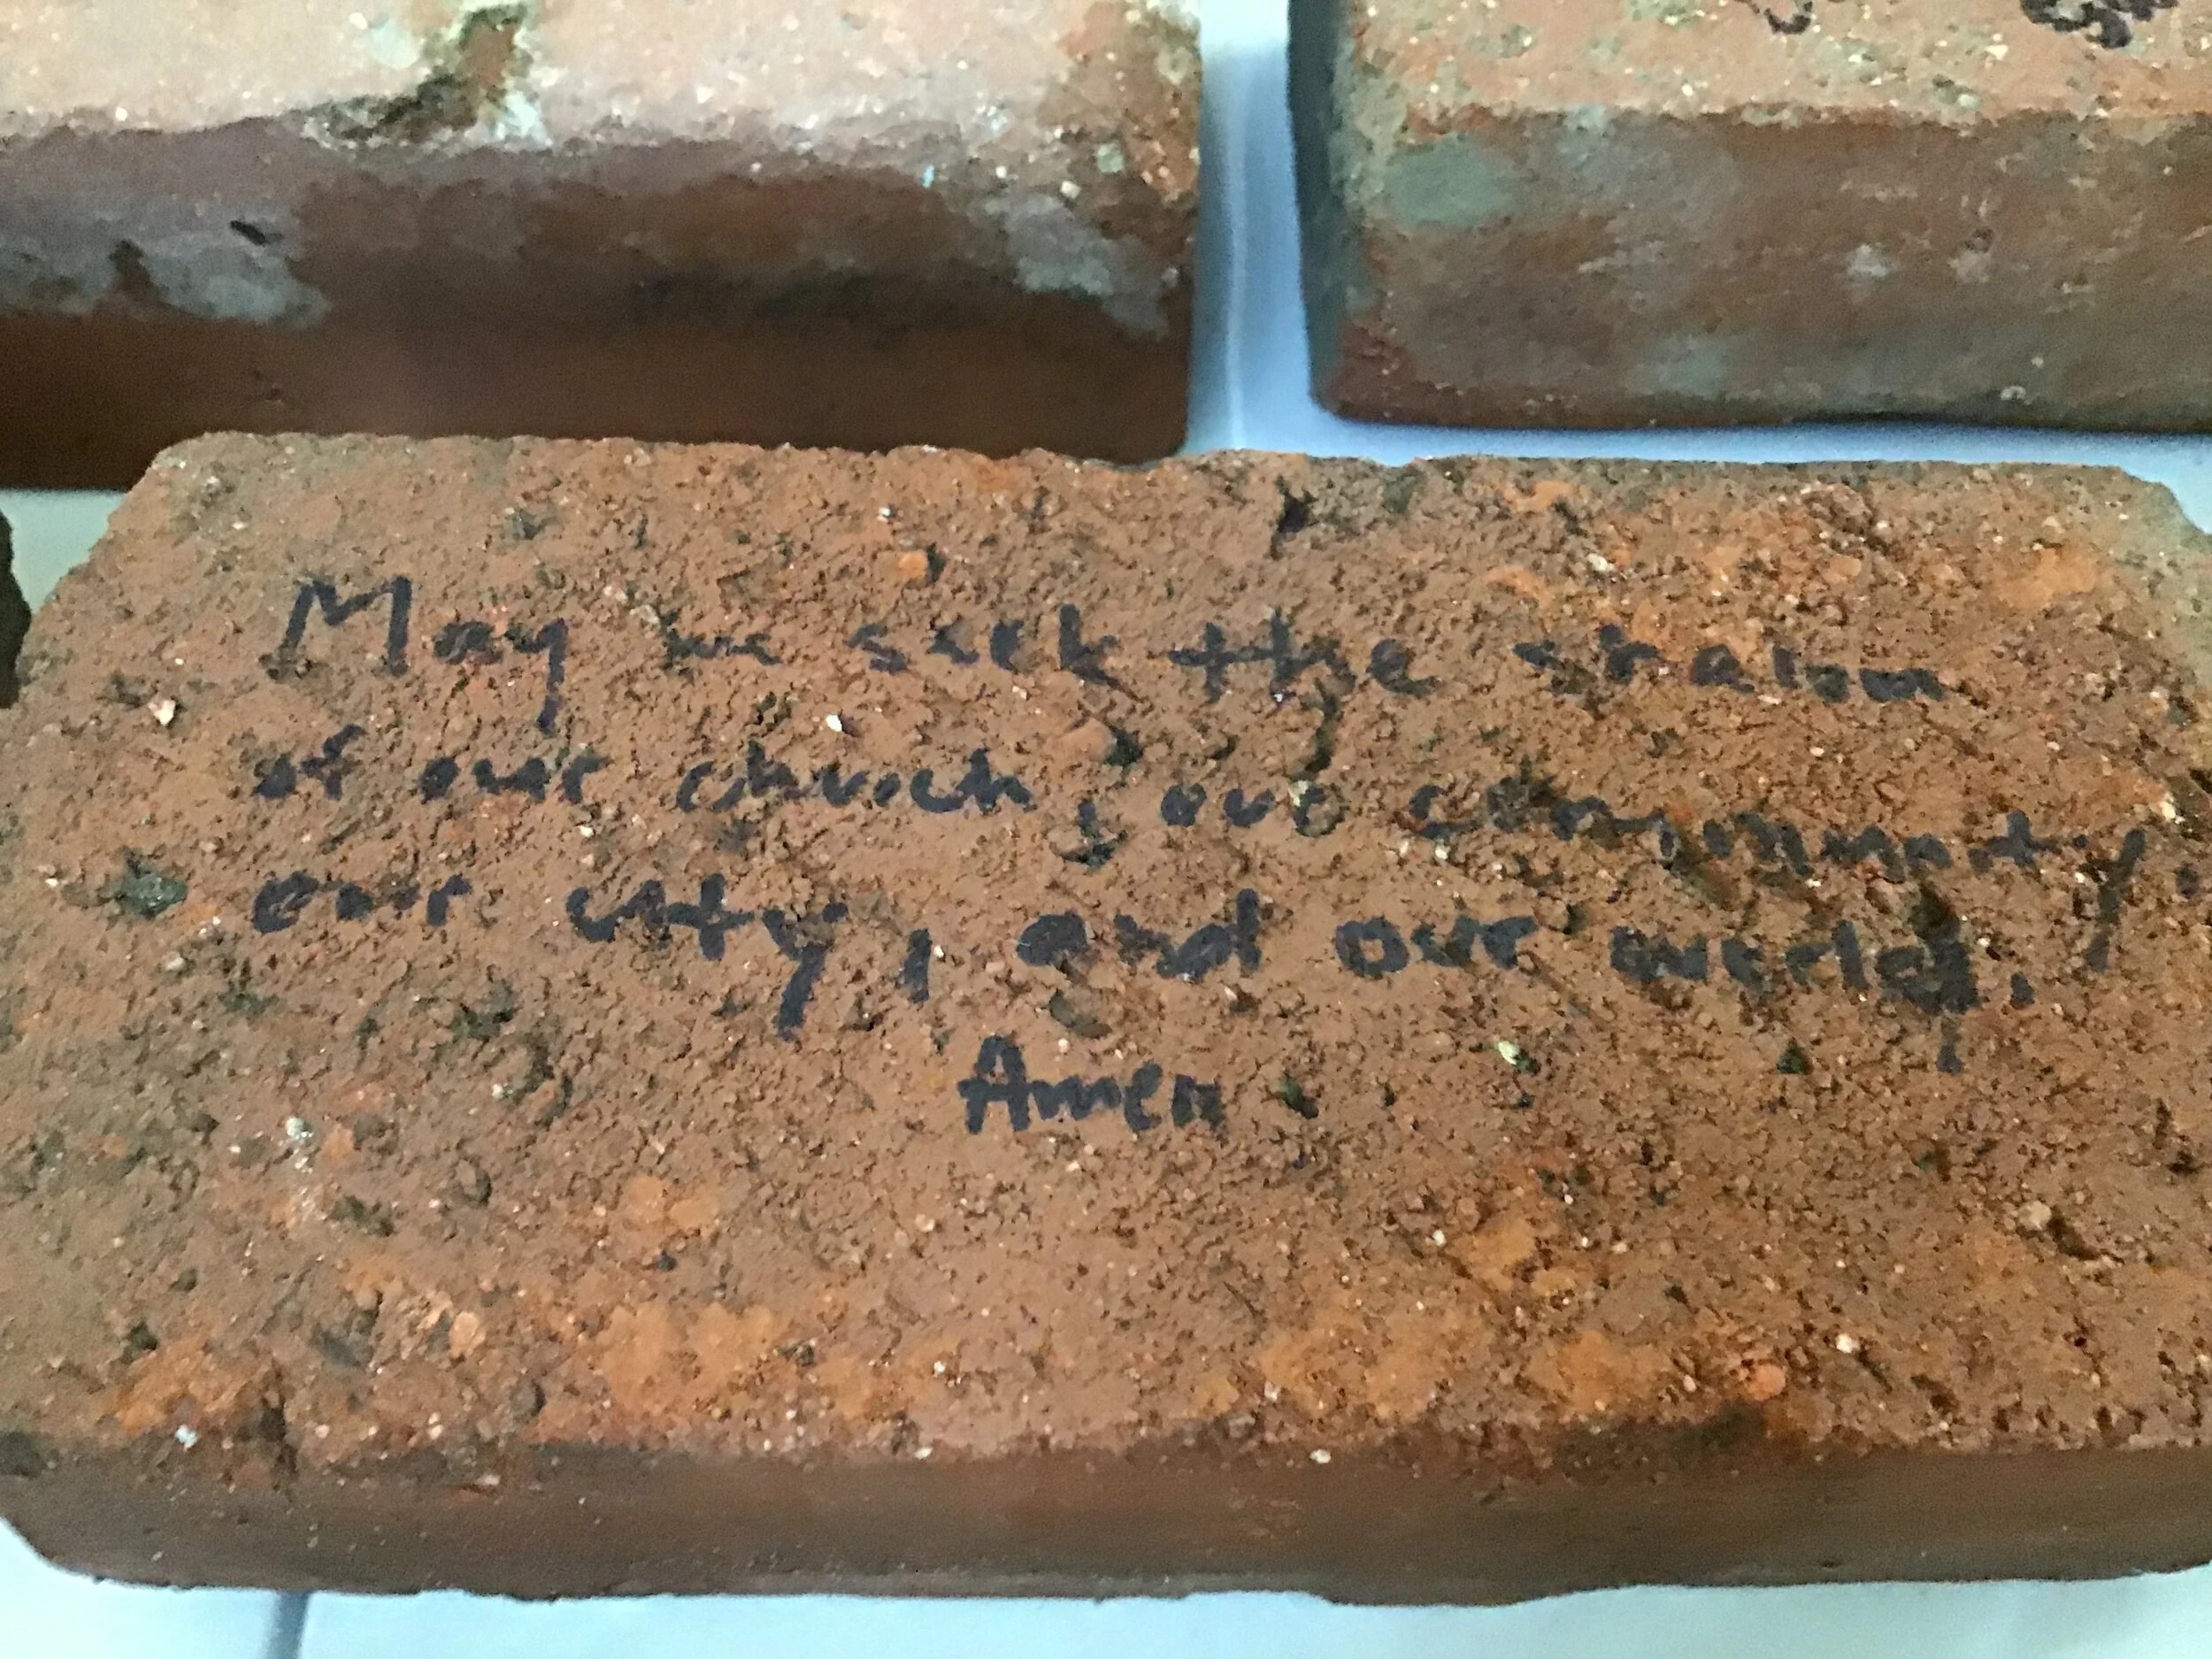 May we seek the shalom
of our church, our community,
our city, and our world.
Amen